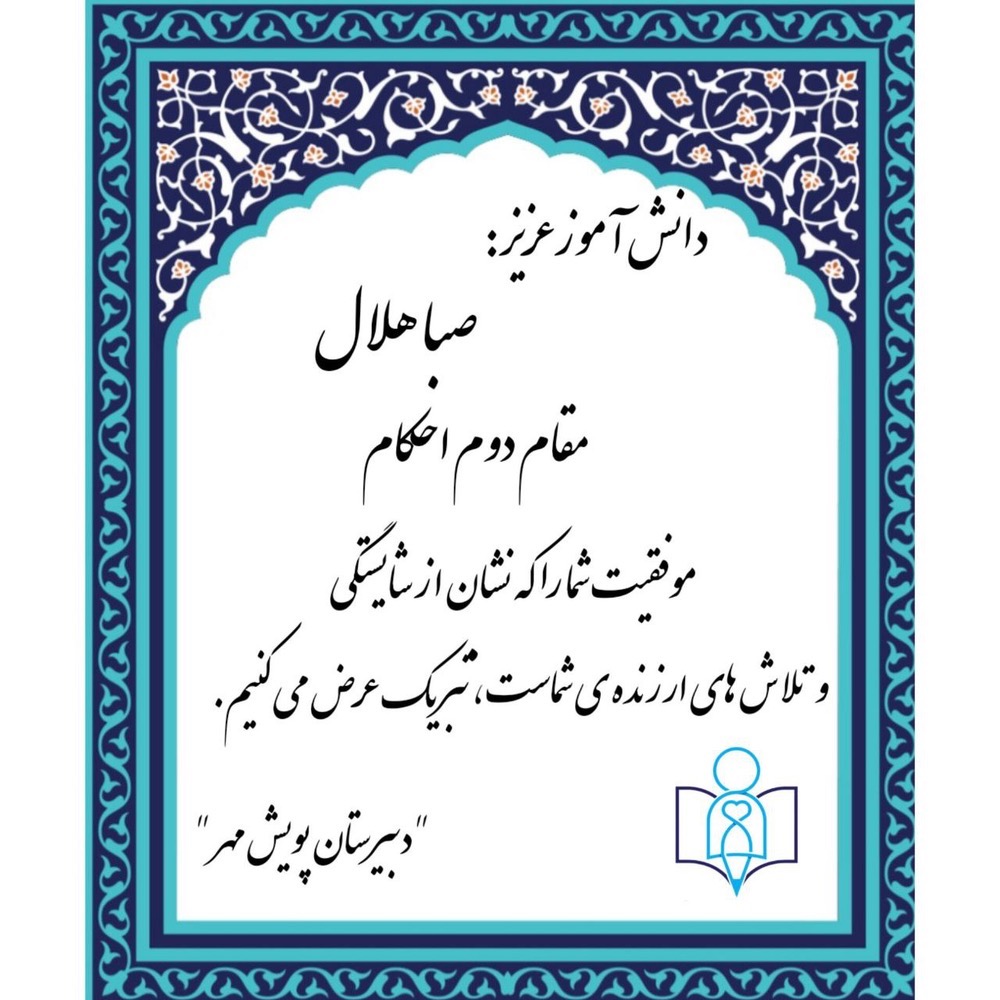 دانش آموز عزیز:
صبا هلال
مقام دوم احکام
موفقیت شما را که نشان از شایستگی
و تلاش های ارزنده ی شماست، تبریک عرض می کنیم.
"دبیرستان پویش مهر"